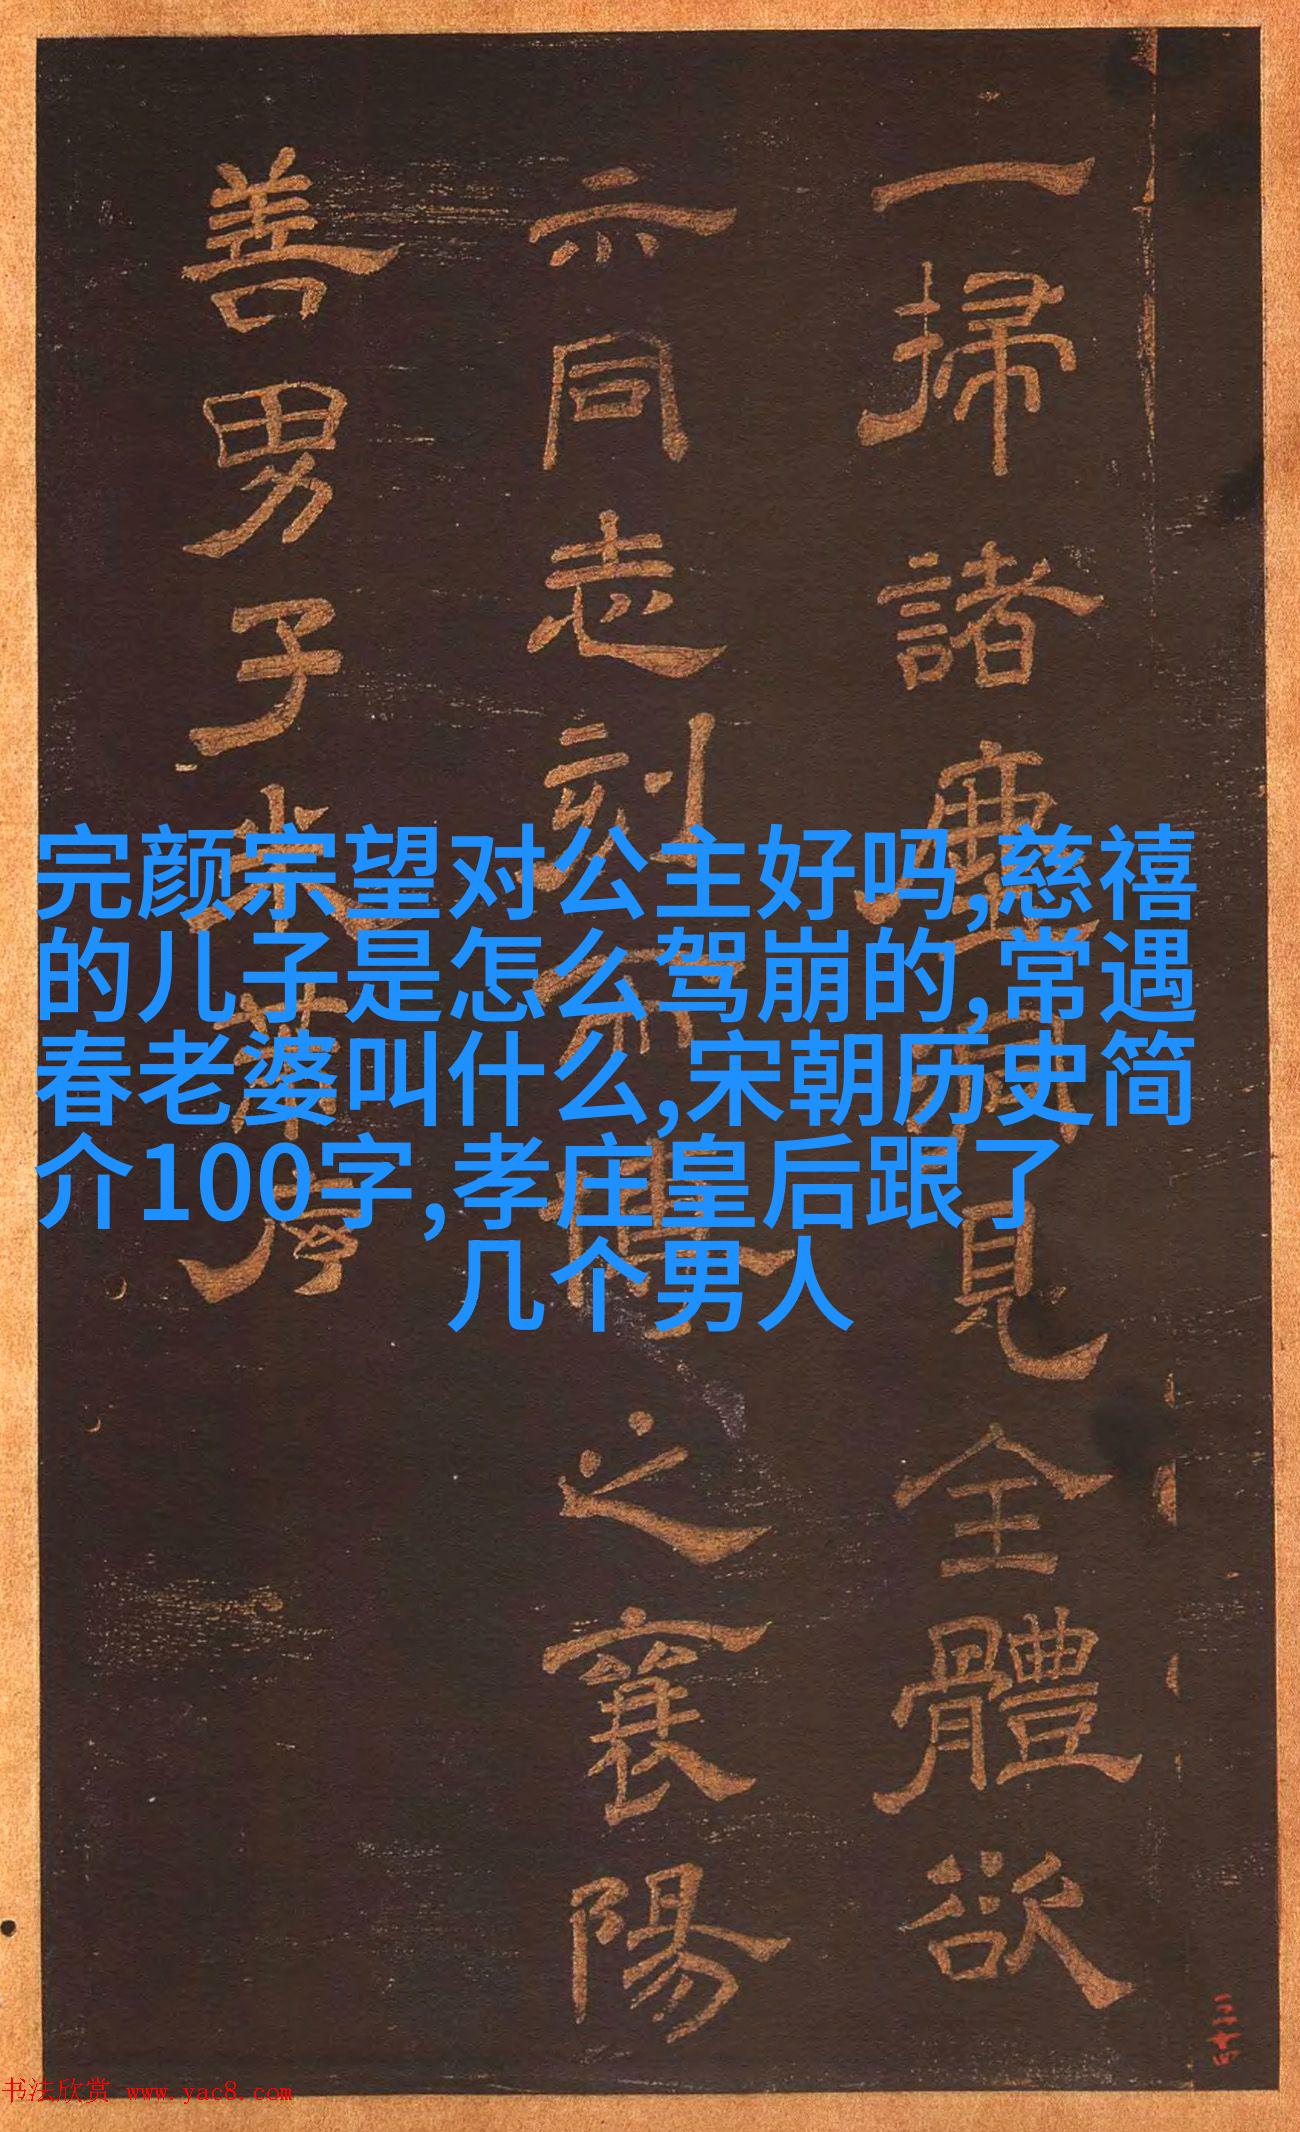 一掃諸塵
見全體欲
示同志刻
之襄陽
善男子
完颜宗望对公主好吗,慈禧
的儿子是怎么驾崩的,常遇
春老婆叫什么,宋朝历史简
介100字,孝庄皇后跟了
几个男人
三十四
书法欣赏 www.yac8.com